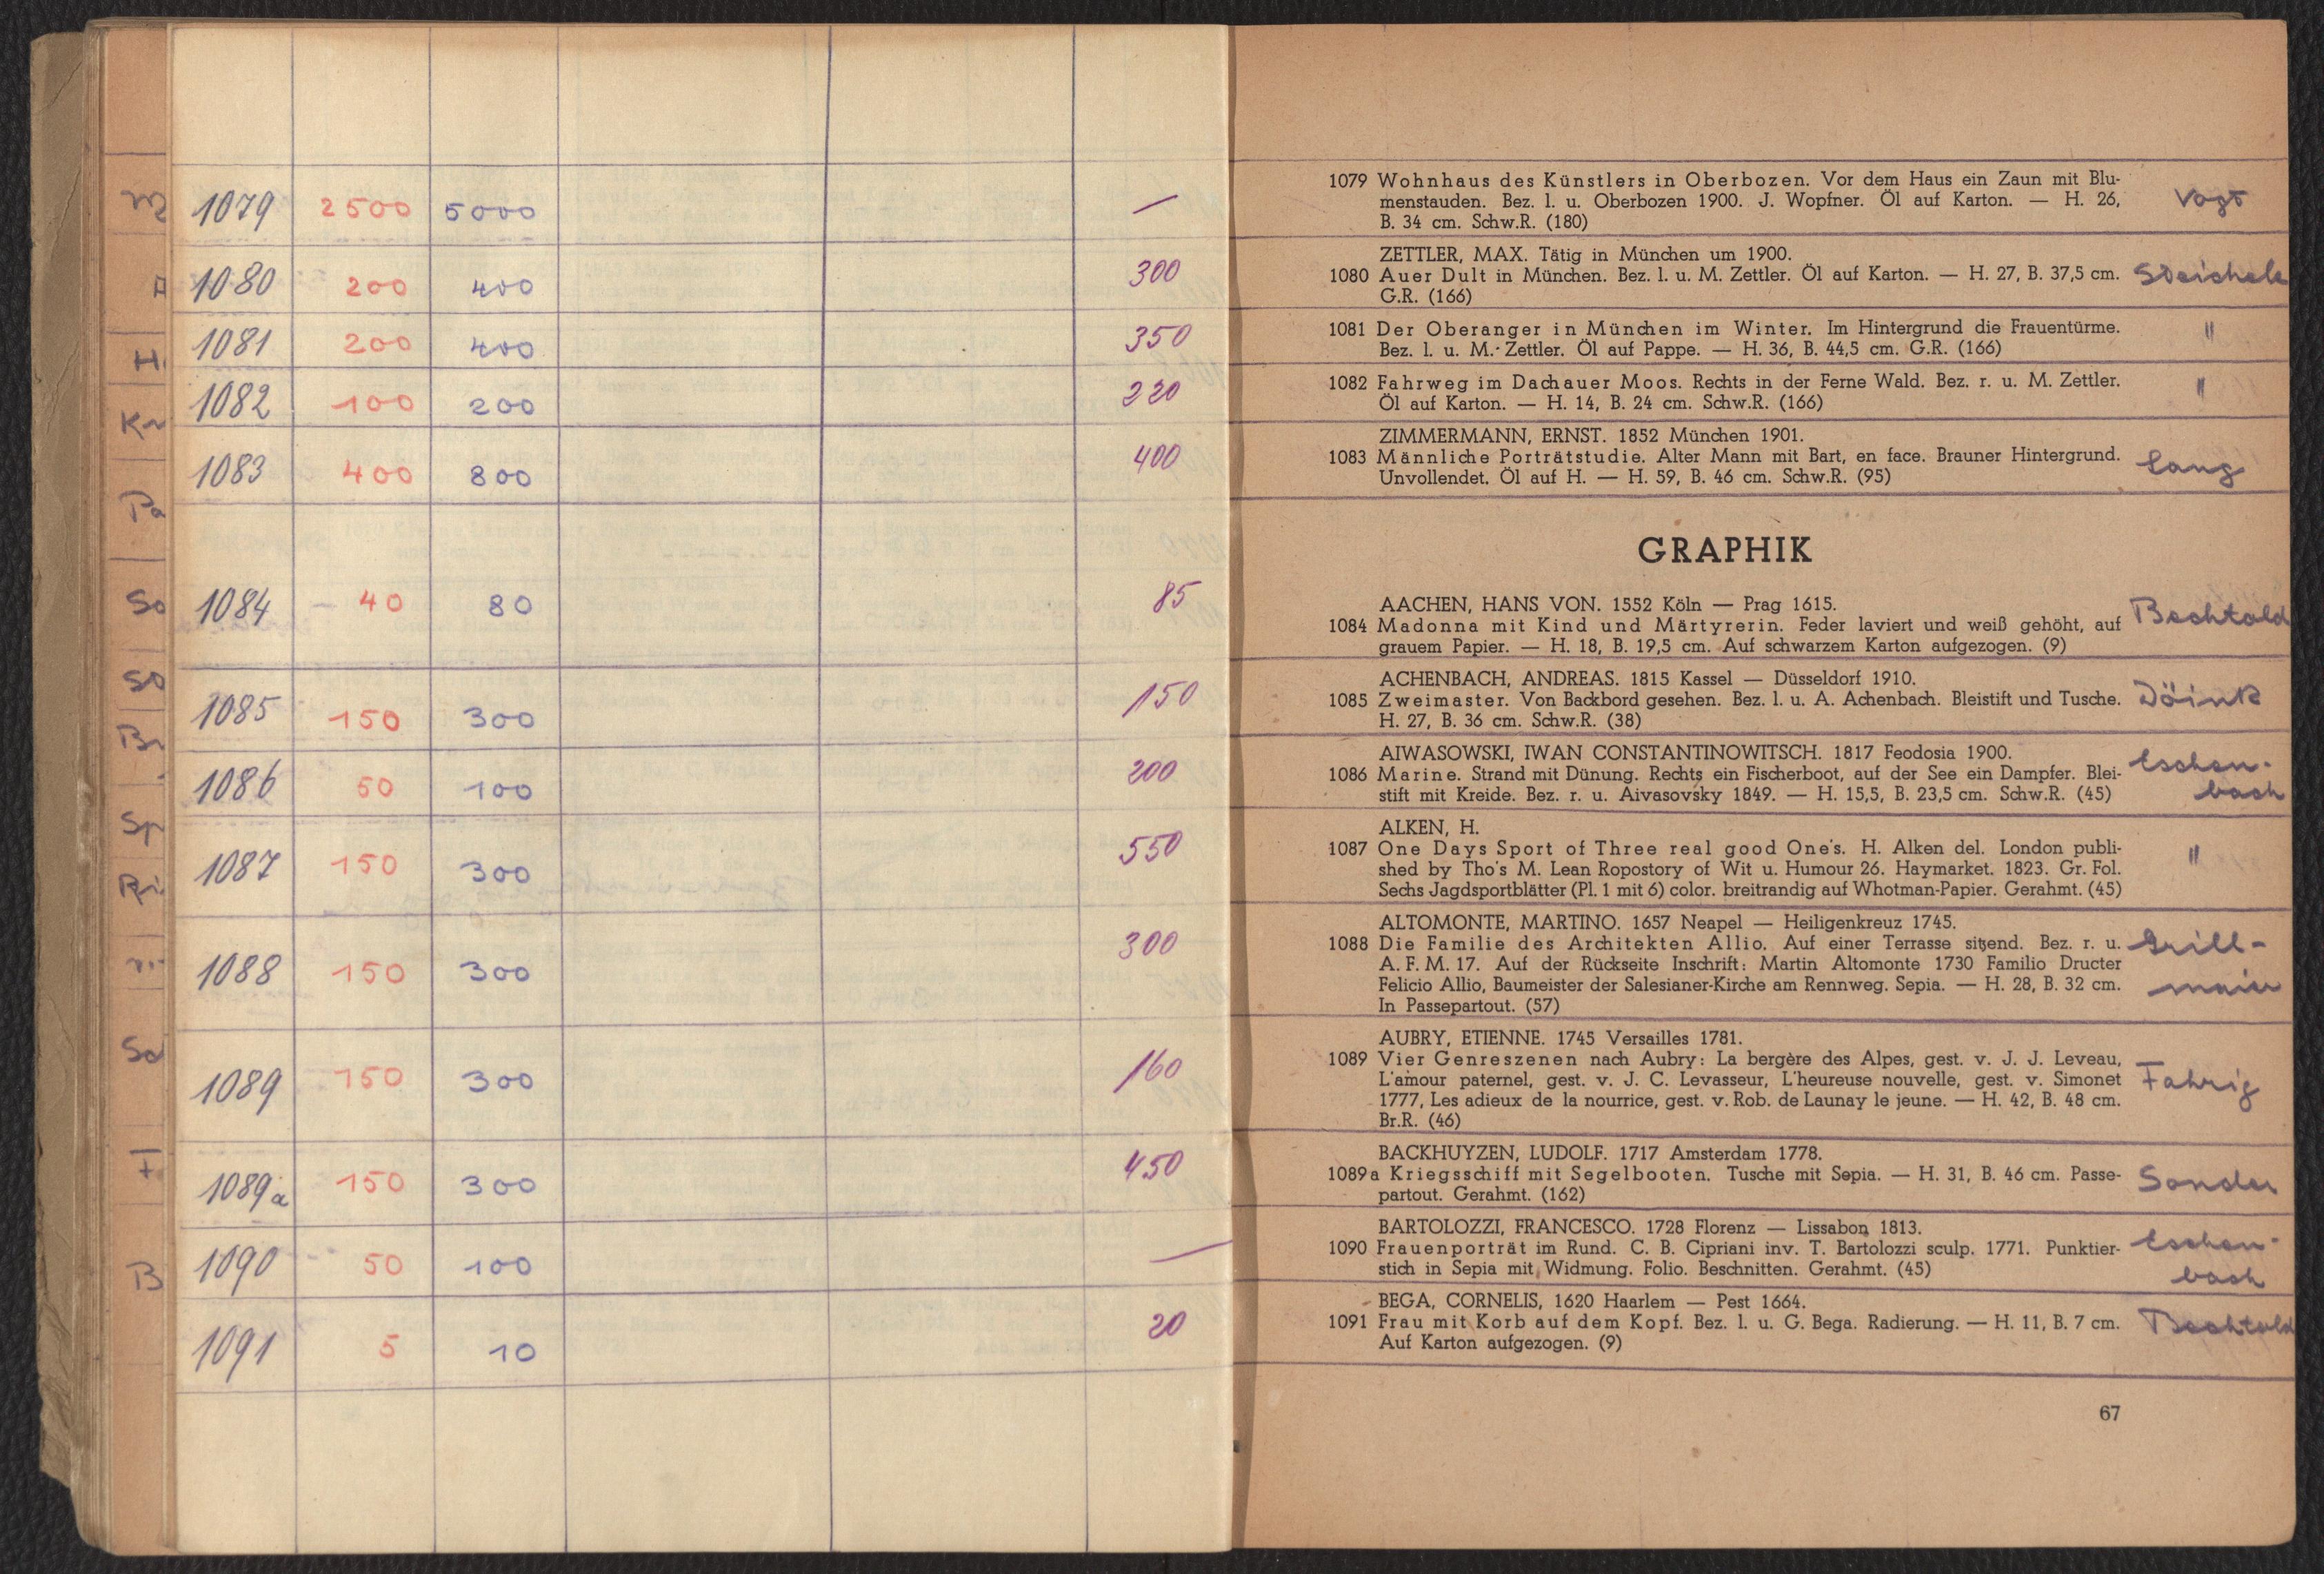 1079 2500 5000 —
1080 200 400 300
1081 200 400 350
1082 100 200 220
1083 400 800 400
1084 - 40 80 85
1085 150 300 150
1086 50 100 200
1087 150 300 550
1088 150 300 300
1089 150 300 160
1089a 150 300 450
1090 50 100 —
1091 5 10 20
A
H.
Kr
Pa
So
So
Br
Sp
Ri
Sa
F
B
1079 Wohnhaus des Künstlers in Oberbozen. Vor dem Haus ein Zaun mit Blu-
menstauden. Bez. l. u. Oberbozen 1900. J. Wopfner. Öl auf Karton. — H. 26,
B. 34 cm. Schw.R. (180)
Vogt
ZETTLER, MAX. Tätig in München um 1900.
1080 Auer Dult in München. Bez. l. u. M. Zettler. Öl auf Karton. — H. 27, B. 37,5 cm.
G.R. (166)
Steichele
1081 Der Oberanger in München im Winter. Im Hintergrund die Frauentürme.
Bez. l. u. M. Zettler. Öl auf Pappe. — H. 36, B. 44,5 cm. G.R. (166)
"
1082 Fahrweg im Dachauer Moos. Rechts in der Ferne Wald. Bez. r. u. M. Zettler.
Öl auf Karton. — H. 14, B. 24 cm. Schw.R. (166)
"
ZIMMERMANN, ERNST. 1852 München 1901.
1083 Männliche Porträtstudie. Alter Mann mit Bart, en face. Brauner Hintergrund.
Unvollendet. Öl auf H. — H. 59, B. 46 cm. Schw.R. (95)
Lang
GRAPHIK
AACHEN, HANS VON. 1552 Köln — Prag 1615.
1084 Madonna mit Kind und Märtyrerin. Feder laviert und weiß gehöht, auf
grauem Papier. — H. 18, B. 19,5 cm. Auf schwarzem Karton aufgezogen. (9)
Bechtold
ACHENBACH, ANDREAS. 1815 Kassel — Düsseldorf 1910.
1085 Zweimaster. Von Backbord gesehen. Bez. l. u. A. Achenbach. Bleistift und Tusche.
H. 27, B. 36 cm. Schw.R. (38)
AIWASOWSKI, IWAN CONSTANTINOWITSCH. 1817 Feodosia 1900.
1086 Marine. Strand mit Dünung. Rechts ein Fischerboot, auf der See ein Dampfer. Blei-
stift mit Kreide. Bez. r. u. Aivasovsky 1849. — H. 15,5, B. 23,5 cm. Schw.R. (45)
Eschen-
bach
ALKEN, H.
1087 One Days Sport of Three real good One's. H. Alken del. London publi-
shed by Tho's M. Lean Ropostory of Wit u. Humour 26. Haymarket. 1823. Gr. Fol.
Sechs Jagdsportblätter (Pl. 1 mit 6) color. breitrandig auf Whotman-Papier. Gerahmt. (45)
"
ALTOMONTE, MARTINO. 1657 Neapel — Heiligenkreuz 1745.
1088 Die Familie des Architekten Allio. Auf einer Terrasse sitzend. Bez. r. u.
A. F. M. 17. Auf der Rückseite Inschrift: Martin Altomonte 1730 Familio Dructer
Felicio Allio, Baumeister der Salesianer-Kirche am Rennweg. Sepia. — H. 28, B. 32 cm.
In Passepartout. (57)
Grill-
maier
AUBRY, ETIENNE. 1745 Versailles 1781.
1089 Vier Genreszenen nach Aubry: La bergère des Alpes, gest. v. J. J. Leveau,
L'amour paternel, gest. v. J. C. Levasseur, L'heureuse nouvelle, gest. v. Simonet
1777, Les adieux de la nourrice, gest. v. Rob. de Launay le jeune. — H. 42, B. 48 cm.
Br.R. (46)
Fahrig
BACKHUYZEN, LUDOLF. 1717 Amsterdam 1778.
1089a Kriegsschiff mit Segelbooten. Tusche mit Sepia. — H. 31, B. 46 cm. Passe-
partout. Gerahmt. (162)
Sander
BARTOLOZZI, FRANCESCO. 1728 Florenz — Lissabon 1813.
1090 Frauenporträt im Rund. C. B. Cipriani inv. T. Bartolozzi sculp. 1771. Punktier-
stich in Sepia mit Widmung. Folio. Beschnitten. Gerahmt. (45)
Eschen-
bach
BEGA, CORNELIS, 1620 Haarlem — Pest 1664.
1091 Frau mit Korb auf dem Kopf. Bez. l. u. G. Bega. Radierung. — H. 11, B. 7 cm.
Auf Karton aufgezogen. (9)
Bechtold
67